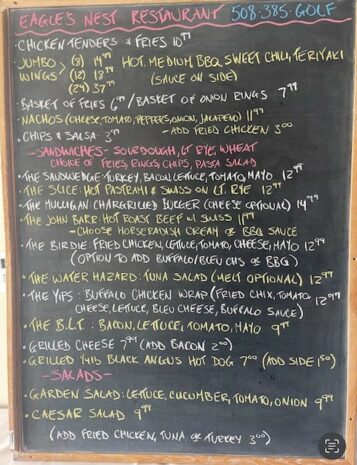 EAGLE'S NEST RESTAURANT 508-385-GOLF
• CHICKEN TENDERS & FRIES 10 99
• JUMBO WINGS > (8) 14 99 HOT, MEDIUM, BBQ, SWEET CHILI, TERIYAKI
(12) 18 99 (SAUCE ON SIDE)
(24) 37 99
• BASKET OF FRIES 6 99 / BASKET OF ONION RINGS 7 99
• NACHOS (CHEESE, TOMATO, PEPPERS, ONION, JALAPENO) 11 99
- ADD FRIED CHICKEN 3 00
• CHIPS & SALSA 3 99
- SANDWICHES - SOURDOUGH, LT RYE, WHEAT
CHOICE OF FRIES, RINGS, CHIPS, PASTA SALAD
• THE SANDWEDGE: TURKEY, BACON, LETTUCE, TOMATO, MAYO 12 99
• THE SLICE: HOT PASTRAMI & SWISS ON LT. RYE 12 99
• THE MULLIGAN: CHARGRILLED BURGER (CHEESE OPTIONAL) 14 99
• THE JOHN BARR: HOT ROAST BEEF W/ SWISS 11 99
- CHOOSE HORSERADISH CREAM OR BBQ SAUCE
• THE BIRDIE: FRIED CHICKEN, LETTUCE, TOMATO, CHEESE, MAYO 12 99
(OPTION TO ADD BUFFALO/BLEU CHS OR BBQ)
• THE WATER HAZARD: TUNA SALAD (MELT OPTIONAL) 12 99
• THE YIPS: BUFFALO CHICKEN WRAP (FRIED CHIX, TOMATO 12 99
CHEESE, LETTUCE, BLEU CHEESE, BUFFALO SAUCE)
• THE B.L.T.: BACON, LETTUCE, TOMATO, MAYO 9 99
• GRILLED CHEESE 7 99 (ADD BACON 2 00)
• GRILLED 1/4 lb BLACK ANGUS HOT DOG 7 00 (ADD SIDE 1 50)
- SALADS -
• GARDEN SALAD: LETTUCE, CUCUMBER, TOMATO, ONION 9 99
• CAESAR SALAD 9 99
(ADD FRIED CHICKEN, TUNA OR TURKEY 3 00)